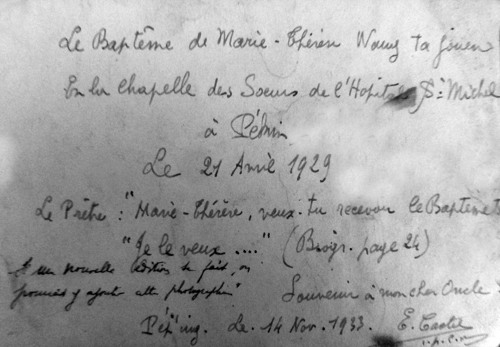 Le Baptême de Marie-Thérèse Wang Ta
En la chapelle des Soeurs de l'Hopital St Michel
à Pékin
Le 21 Avril 1929
Le Prêtre : "Marie-Thérèse, veux-tu recevoir le Baptême
"Je le veux ...." (Biogr. page 24)
Si une nouvelle édition se fait, on
pourrait y ajouter cette photographie"
Souvenir à mon cher Oncle
Pép'ing. Le. 14 Nov. 1933. E. Castel